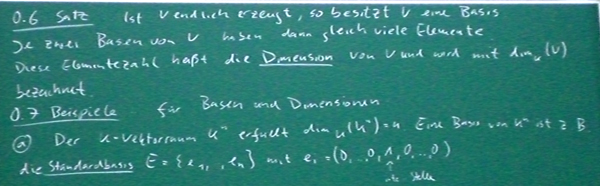 0.6 Satz Ist V endlich erzeugt, so besitzt V eine Basis
Je zwei Basen von V haben dann gleich viele Elemente.
Diese Elementezahl haßt die Dimension von V und wird mit dim_K(V)
bezeichnet.
0.7 Beispiele für Basen und Dimensionen
(a) Der K-Vektorraum K^n erfüllt dim_K(K^n)=n. Eine Basis von K^n ist z B
die Standardbasis E = {e_1, ..., e_n} mit e_i = (0,...0,1,0,...,0)
↑
i-te Stelle